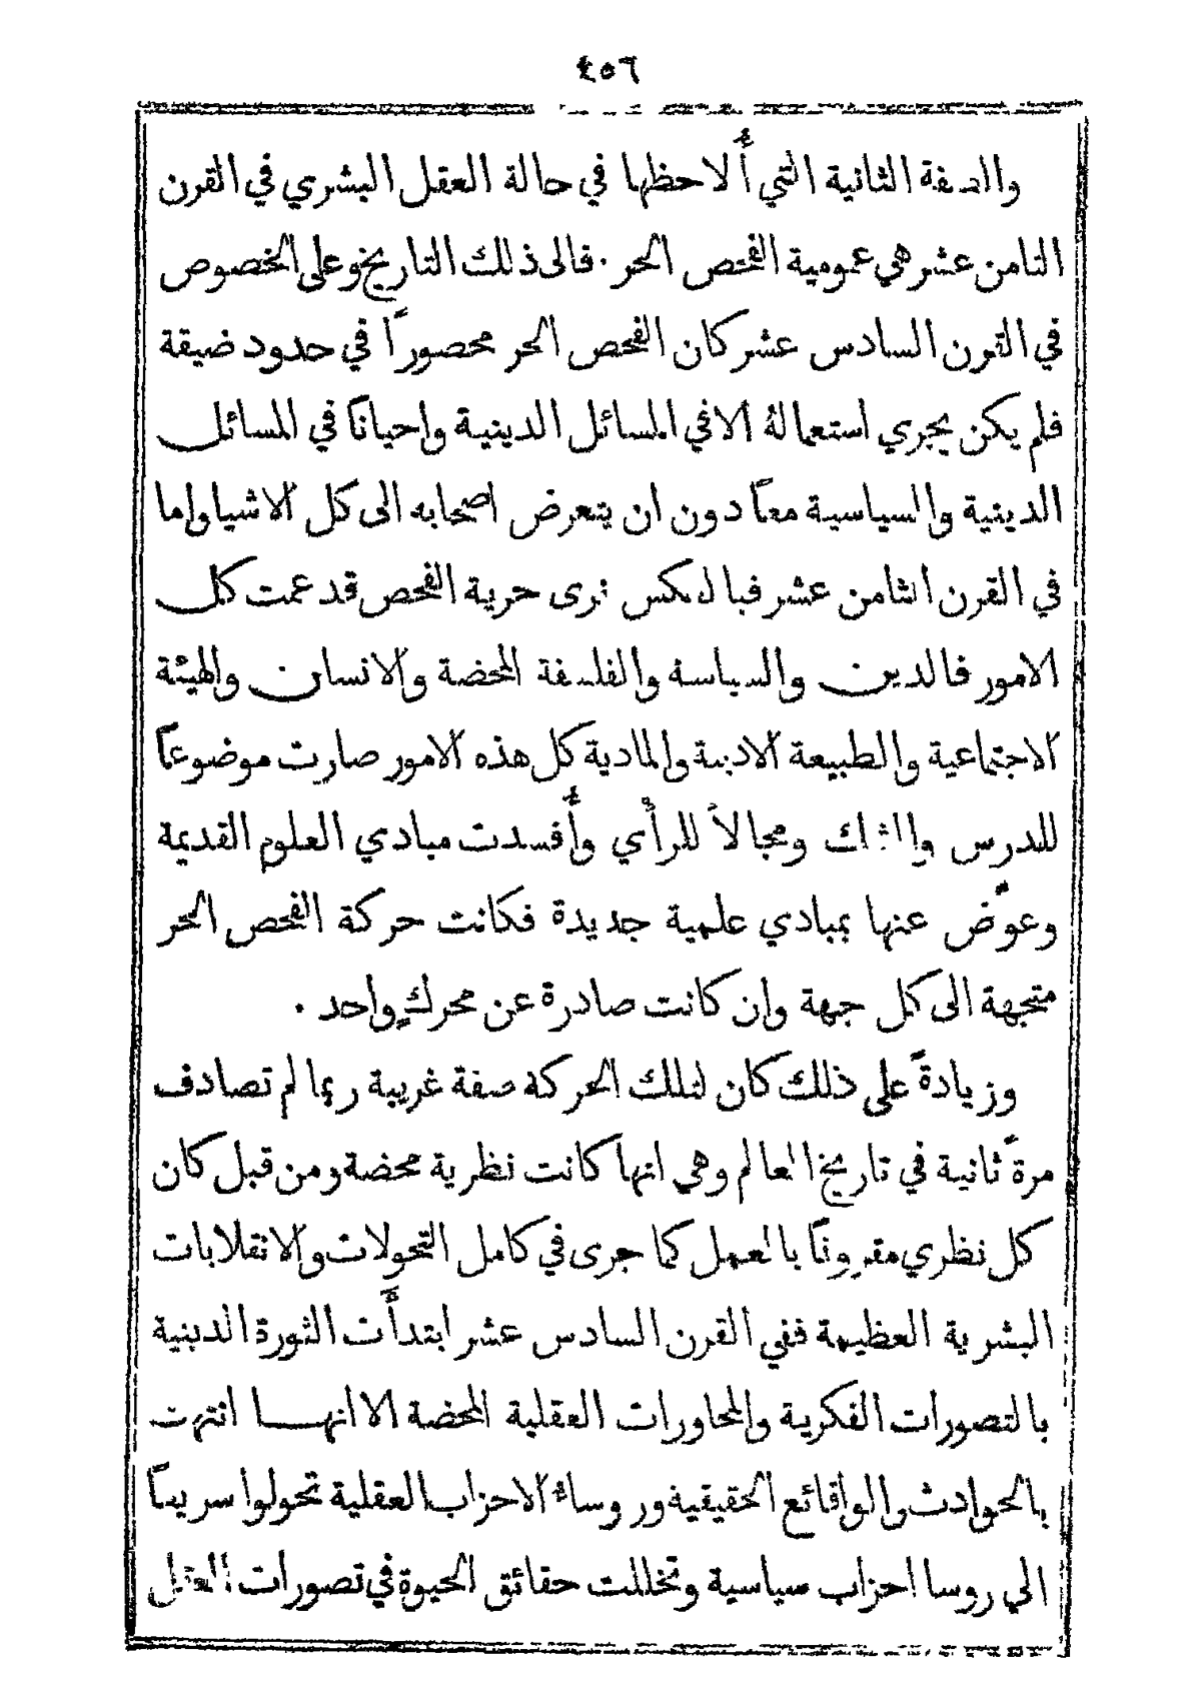 ٤٥٦
والصفة الثانية التي أُلاحظها في حالة العقل البشري في القرن
الثامن عشر هي عمومية الفحص الحر . فالى ذلك التاريخ وعلى الخصوص
في القرن السادس عشر كان الفحص الحر محصوراً في حدود ضيقة
فلم يكن يجري استعمالهُ الا في المسائل الدينية واحياناً في المسائل
الدينية والسياسية معاً دون ان يتعرض اصحابه الى كل الاشيا واما
في القرن الثامن عشر فبالعكس نرى حرية الفحص قد عمت كل
الامور فالدين والسياسة والفلسفة المحضة والانسان والهيئة
الاجتماعية والطبيعة الادبية والمادية كل هذه الامور صارت موضوعاً
للدرس والشك ومجالاً للرأي وأُفسدت مبادي العلوم القديمة
وعوّض عنها بمبادي علمية جديدة فكانت حركة الفحص الحر
متجهة الى كل جهة وان كانت صادرة عن محركٍ واحد .
وزيادةً على ذلك كان لتلك الحركة صفة غريبة ربما لم تصادف
مرةً ثانية في تاريخ العالم وهي انها كانت نظرية محضة ومن قبل كان
كل نظري مقروناً بالعمل كما جرى في كامل التحولات والانقلابات
البشرية العظيمة ففي القرن السادس عشر ابتدأَت الثورة الدينية
بالتصورات الفكرية والمحاورات العقلية المحضة الا انها انتهت
بالحوادث والوقائع الحقيقية وروساء الاحزاب العقلية تحولوا سريعاً
الي روسا احزاب سياسية وتخللت حقائق الحيوة في تصورات العقل